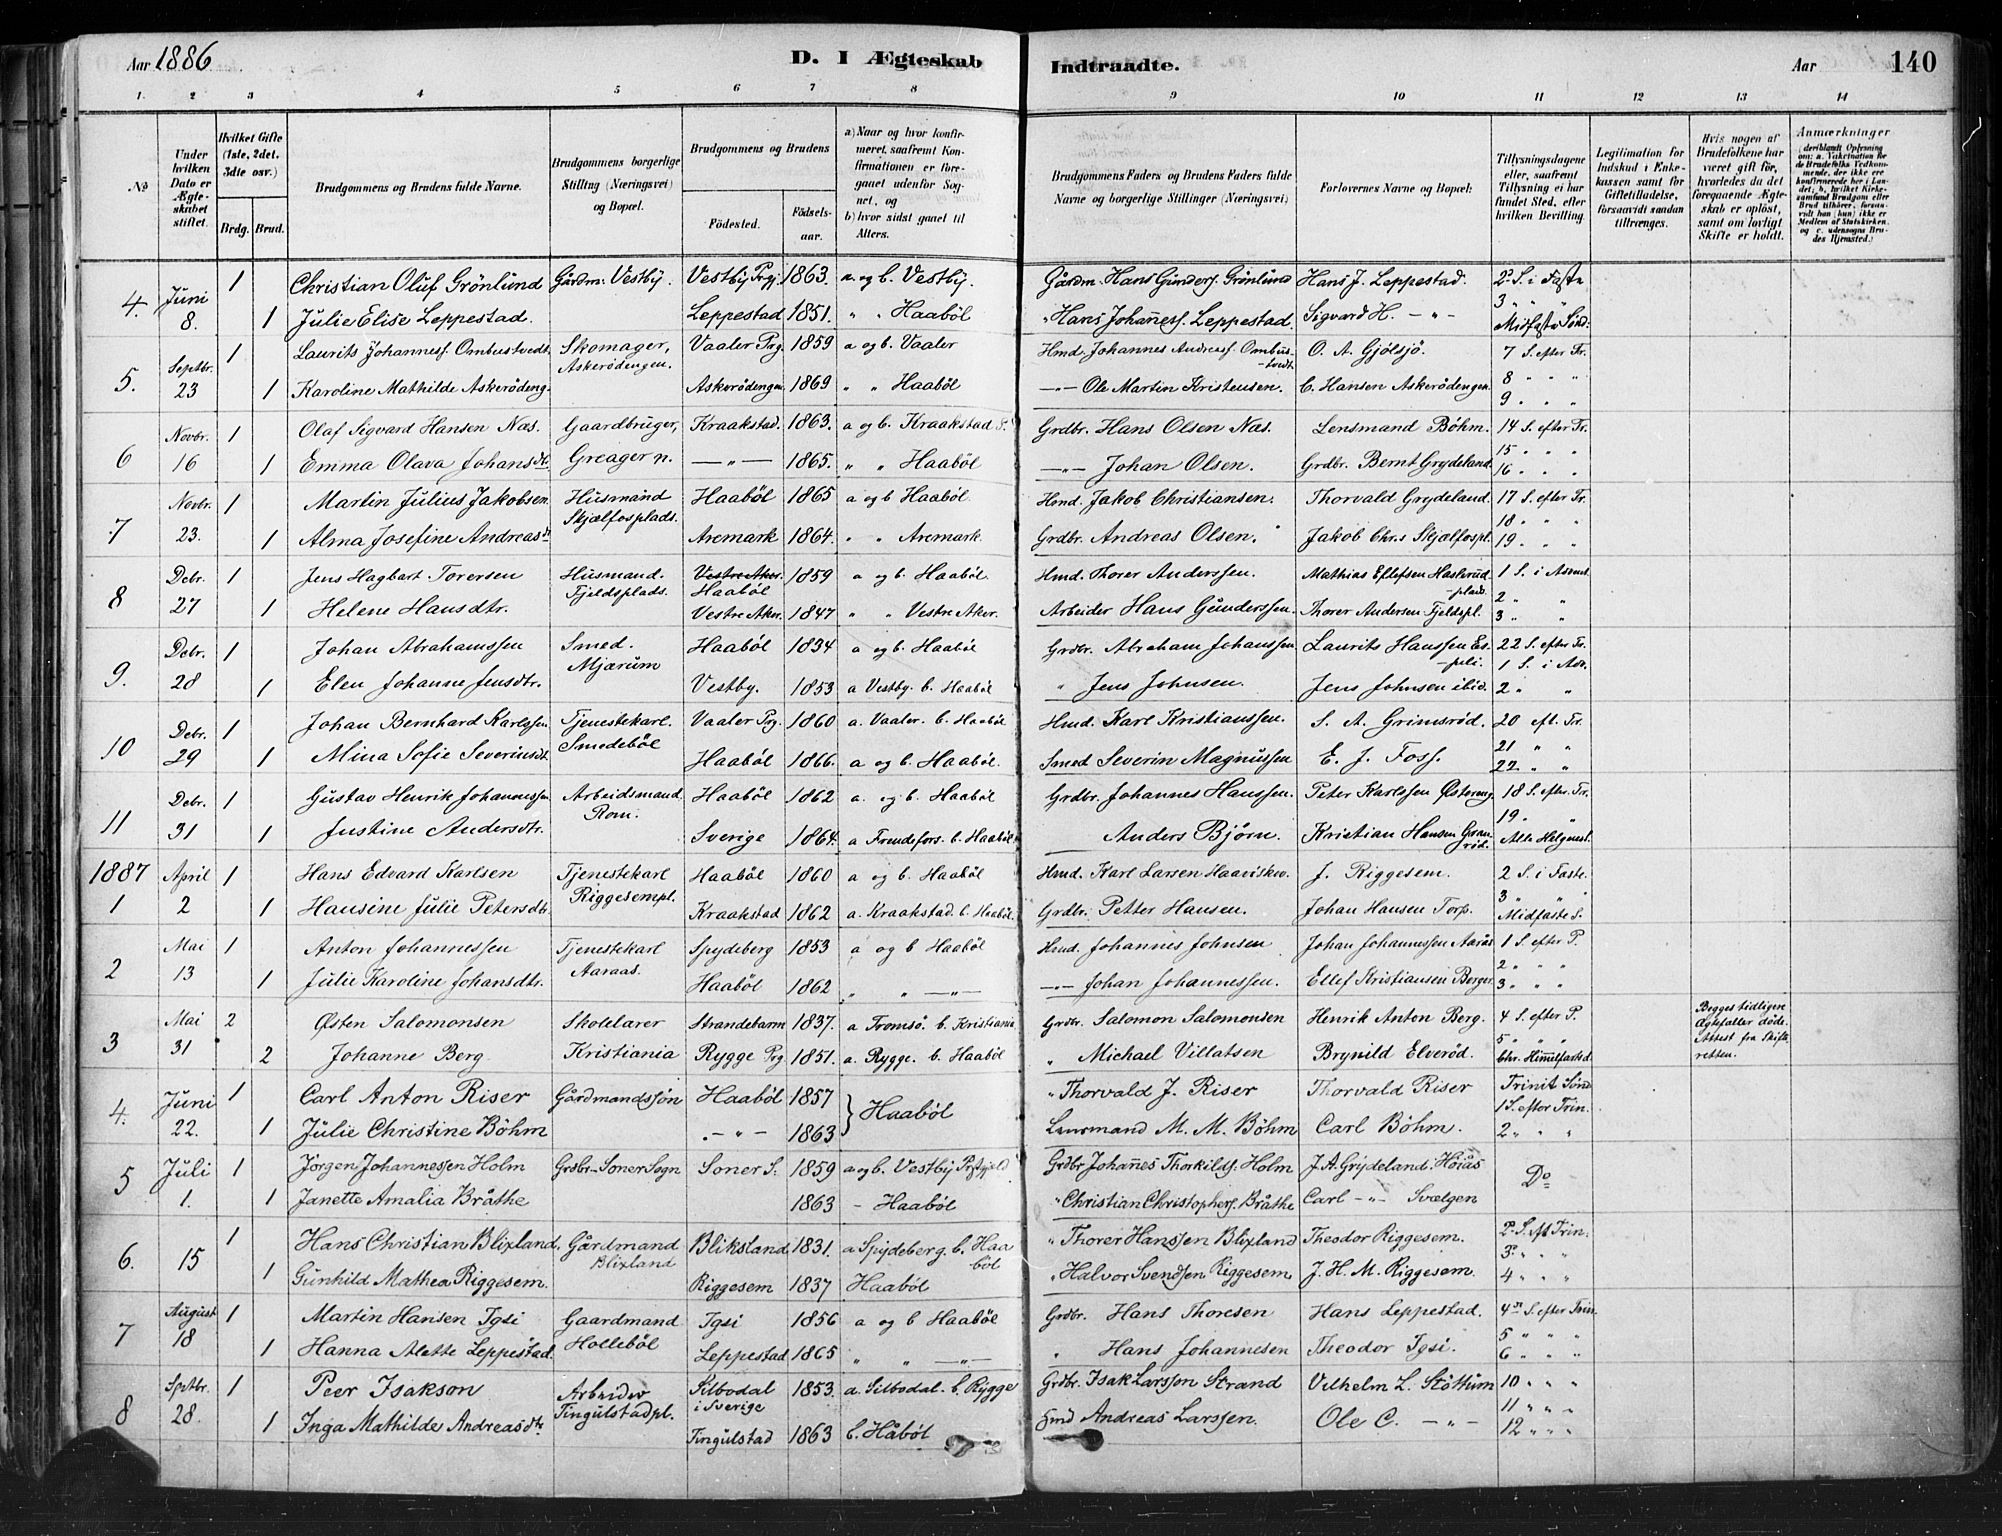 Aar 1886 D. I Ægteskab Indtraadte. Aar 140
1. 2 3 4 5 6 7 8 9 10 11 12 13 14
No
Under hvilken Dato er Ægteskabet stiftet.
Hvilket Gifte (1ste, 2det, 3dte osv.)
Brdg. Brud.
Brudgommens og Brudens fulde Navne.
Brudgommens borgerlige Stilling (Næringsvei) og Bopæl.
Brudgommens og Brudens
Fødested. Fødselsaar.
a) Naar og hvor konfirmeret, saafremt Konfirmationen er foregaaet udenfor Sognet, og
b) hvor sidst gaaet til Alters.
Brudgommens Faders og Brudens Faders fulde Navne og borgerlige Stillinger (Næringsvei)
Forlovernes Navne og Bopæl:
Tillysningsdagene eller, saafremt Tillysning ei har fundet Sted, efter hvilken Bevilling.
Legitimation for Indskud i Enkekassen samt for Giftetilladelse, forsaavidt saadan tiltrænges.
Hvis nogen af Brudefolkene har været gift før, hvorledes da det foregaaende Ægteskab er opløst, samt om lovligt Skifte er holdt.
Anmærkninger
4. Juni 8. 1 Christian Oluf Grönlund Gårdm: Vestby. Vestby Prgj. 1863. a og b. Vestby. Gårdm. Hans Gunders. Grönlund Hans J. Leppestad. 2d S. i Faste
1 Julie Elise Leppestad. Leppestad 1851. " " Haaböl " Hans Johañess. Leppestad Sigvard H. — " — 3 " " Midfaste Sönd:
5. Septbr. 23 1 Laurits Johanness. Ombustvedt Skomager, Askerödengen. Vaaler Prg. 1859 a og b. Vaaler Hmd. Johannes Andreass. Ombustvedt O. A. Gjölsjö. 7 S. efter Tr.
1 Karoline Mathilde Askerödeng. Askerödengen 1869 " " Haaböl —"— Ole Martin Kristensen. C. Hansen Askerödengen. 8 " " " 9 " " "
6 Novbr. 16 1 Olaf Sigvard Hansen Næs. Gaardbruger, Greager n. Kraakstad. 1863. a og b. Kraakstad S. Grdbr. Hans Olsen Næs. Lensmand Böhm. 14 S. efter Tr.
1 Emma Olava Johansdtr. —"— 1865. " " Haaböl —"— Johan Olsen. Grdbr. Bernt Grydeland. 15 " " " 16 " " "
7 Novbr. 23. 1 Martin Julius Jakobsen Husmand Skjælfosplads. Haaböl 1865 a og b Haaböl. Hmd. Jakob Christiansen. Thorvald Grydeland. 17 S. efter Tr.
1 Alma Josefine Andreasdt Aremark 1864. " " Aremark. Grdbr. Andreas Olsen. Jakob Chr.s Skjælfospl. 18 " " " 19 " " "
8 Debr. 27 1 Jens Hagbart Torersen Husmand. Fjeldsplads. Vestre Aker. Haaböl 1859 a og b. Haaböl. Hmd. Thorer Anderssen. Mathias Eflefsen Haslerudplads. 1 S. i Advent
1 Helene Hansdtr. Vestre Aker. 1847 " " Vestre Aker. Arbeider Hans Gunderssen. Thorer Andersen Fjeldspl. 2 " " 3 " "
9. Debr. 28 1 Johan Abrahamssen Smed. Mjærum Haaböl 1834 a og b. Haaböl Grdbr. Abraham Johanssen. Laurits Hanssen Espeli. 22 S. efter Tr.
1 Elen Johanne Jensdtr. Vestby. 1853 a Vestby b. Haaböl " Jens Johnsen. Jens Johnsen ibid. 1 S. i Adv. 2 " "
10 Debr. 29 1 Johan Bernhard Karlssen Tjenestekarl. Smedeböl Vaaler Prg. 1860 a. Vaaler b. Haaböl Hmd. Karl Kristianssen. S. A. Grimsröd. 20 eft. Tr.
1 Mina Sofie Severinsdt. Haaböl 1866. a og b. Haaböl. Smed Severin Magnussen E. J. Foss. 21 " " 22 " "
11 Debr. 31 1 Gustav Henrik Johannessen Arbeidsmand Rom. Haaböl 1862 a. og b. Haaböl Grdbr. Johannes Hanssen. Peter Karlssen Østereng. 18 S. efter Tr.
1 Justine Andersdtr. Sverige 1864. a Frendefors. b. Haaböl — Anders Bjørn. Kristian Hansen Granröd. 19. " Alle Helgenest.
1887
1 April 2 1 Hans Edvard Karlsen Tjenestekarl Riggesempl. Haaböl 1860 a og b. Haaböl Hmd. Karl Larsen Haaviskov. J. Riggesem. 2 S. i Faste.
1 Hansine Julie Petersdtr. Kraakstad 1862 a. Kraakstad. b. Haaböl. Grdbr. Petter Hansen. Johan Hansen Torp. 3 " " Midfaste S.
2 Mai 13 1 Anton Johannessen Tjenestekarl Aaraas. Spydeberg 1853 a og b Haaböl Hmd. Johannes Johnsen Johan Johannessen Aarås 1 S. efter P.
1 Julie Karoline Johansdtr. Haaböl 1862 " " —"— —"— Johan Johannessen. Ellef Kristiansen Berger. 2 " " " 3 " " "
3 Mai 31 2 Østen Salomonsen Skolelærer Kristiania Strandebarm 1837. a Tromsö. b. Kristiania Grdbr. Salomon Salomonsen Henrik Anton Berg. 4 S. efter P. Begges tidligere Ægtefæller døde. Attest fra Skifteretten.
2 Johanne Berg. Rygge Prg 1851. a. Rygge. b. Haaböl " Michael Villatsen Brynild Elveröd. 5 " " " Chr. Himmelfartsd.
4. Juni 22. 1 Carl Anton Riser Gårdmandssön Haaböl 1857 } Haaböl " Thorvald J. Riser Thorvald Riser Trinit. Sönd
1 Julie Christine Böhm — " — 1863 Lensmand M. M. Böhm Carl Böhm. 1 S. efter Trin. 2 " " "
5 Juli 1. 1 Jörgen Johannessen Holm Grdbr. Soner Sogn Soner S. 1859 a og b. Vestby Prstgjeld. Grdbr Johañes Thorkilds. Holm J. A. Grydeland. Höiås Do
1 Janette Amalia Bråthe 1863 - Haaböl " Christian Christophers. Bråthe Carl —"— Svælgen
6. 15 1 Hans Christian Blixland. Gårdmand Blixland Bliksland 1831. a Spydeberg. b. Haaböl " Thorer Hanssen Blixland Theodor Riggesem. 2d S. eft Trin.
1 Gunhild Mathea Riggesem. Riggesem 1837 Haaböl " Halvor Svendsen Riggesem J. H. M. Riggesem. 3d " " " 4 " " "
7 August 18 1 Martin Hansen Igsi Gaardmand Holleböl Igsi 1856 a og b Haaböl Grdbr. Hans Thoresen Hans Leppestad. 4de S. efter Trin
1 Hanna Alette Leppestad. Leppestad 1865 " " —"— " Hans Johannesen Theodor Igsi. 5 " " " 6 " " "
8 Sptbr. 28. 1 Peer Isakson Arbeider Tingulstadpl. Silbodal i Sverige 1853. a. Silbodal. b. Rygge Grdbr. Isak Larsson Strand Vilhelm L. Stöttum 10 " " "
1 Inga Mathilde Andreasdtr. Tingulstad 1863 b. Håböl Hmd Andreas Larssen. Ole C. —"— 11 " " " 12 " " "